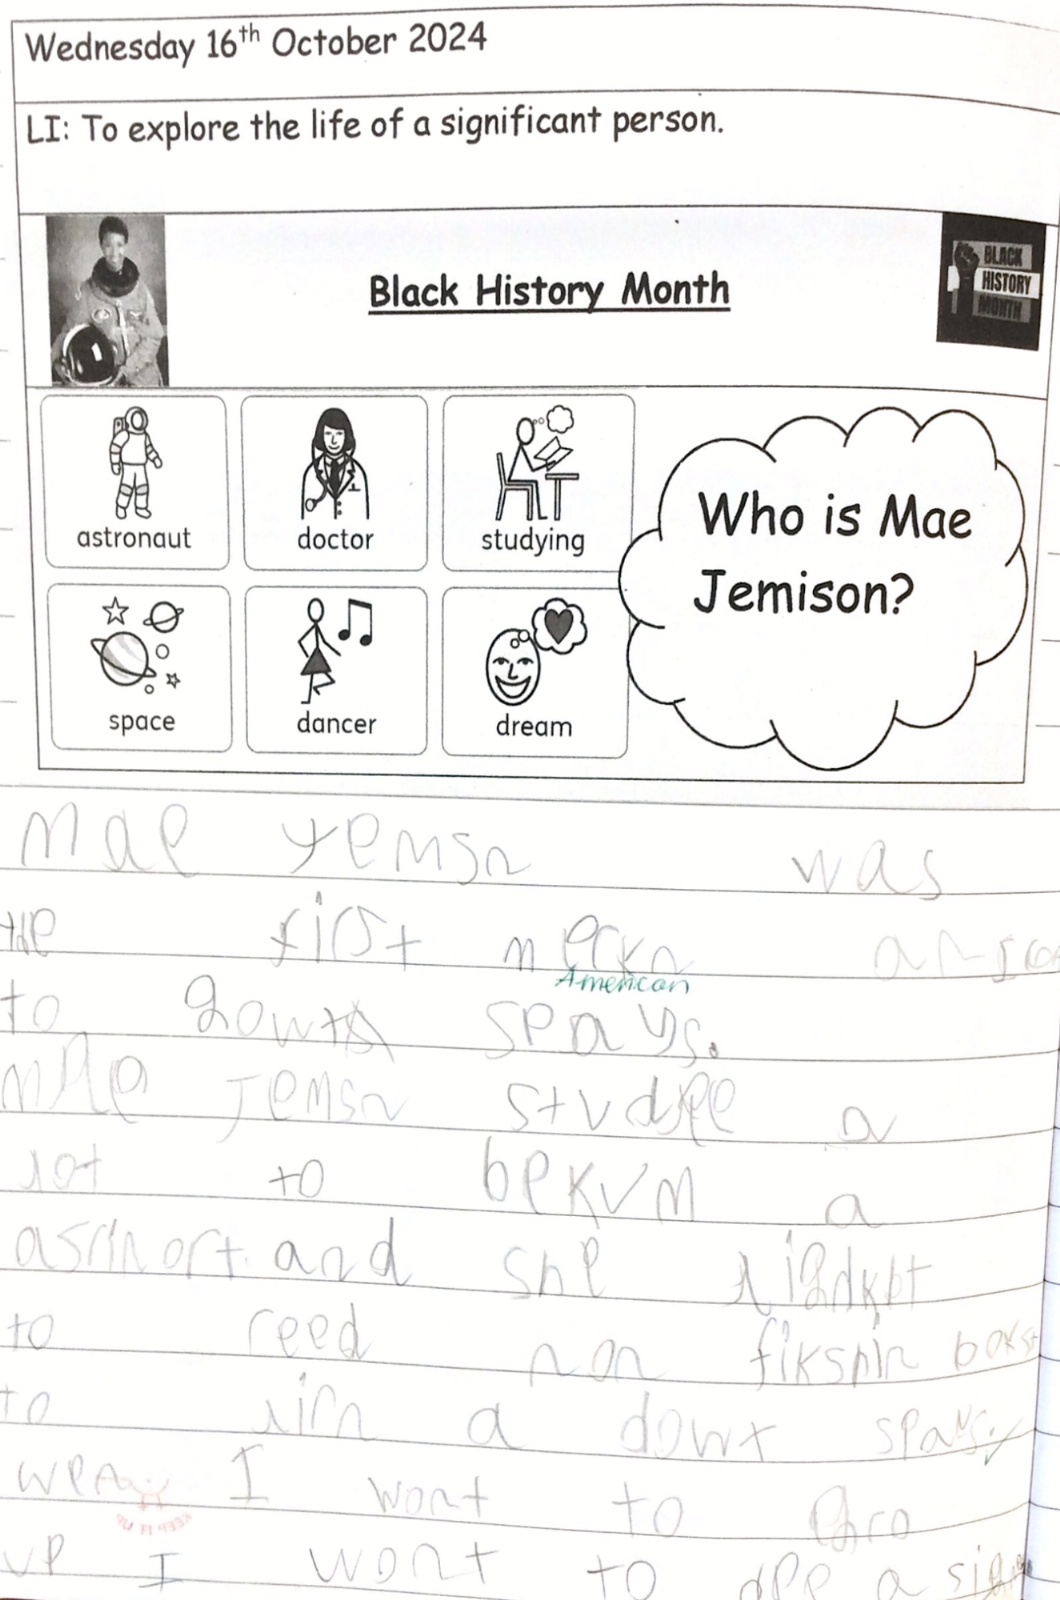 Wednesday 16th October 2024
LI: To explore the life of a significant person.
BLACK
HISTORY
MONTH
Black History Month
astronaut
doctor
studying
Who is Mae
Jemison?
space
dancer
dream
mae yemsn was
the first merkn
American
to gowt spays.
mae Jemsn studee a
lot to bekum a
asrinort. and she
to reed non fikshin
to lirn a dowt spays.
wen I wont to gro
KEEP IT UP
up I wont to dee a